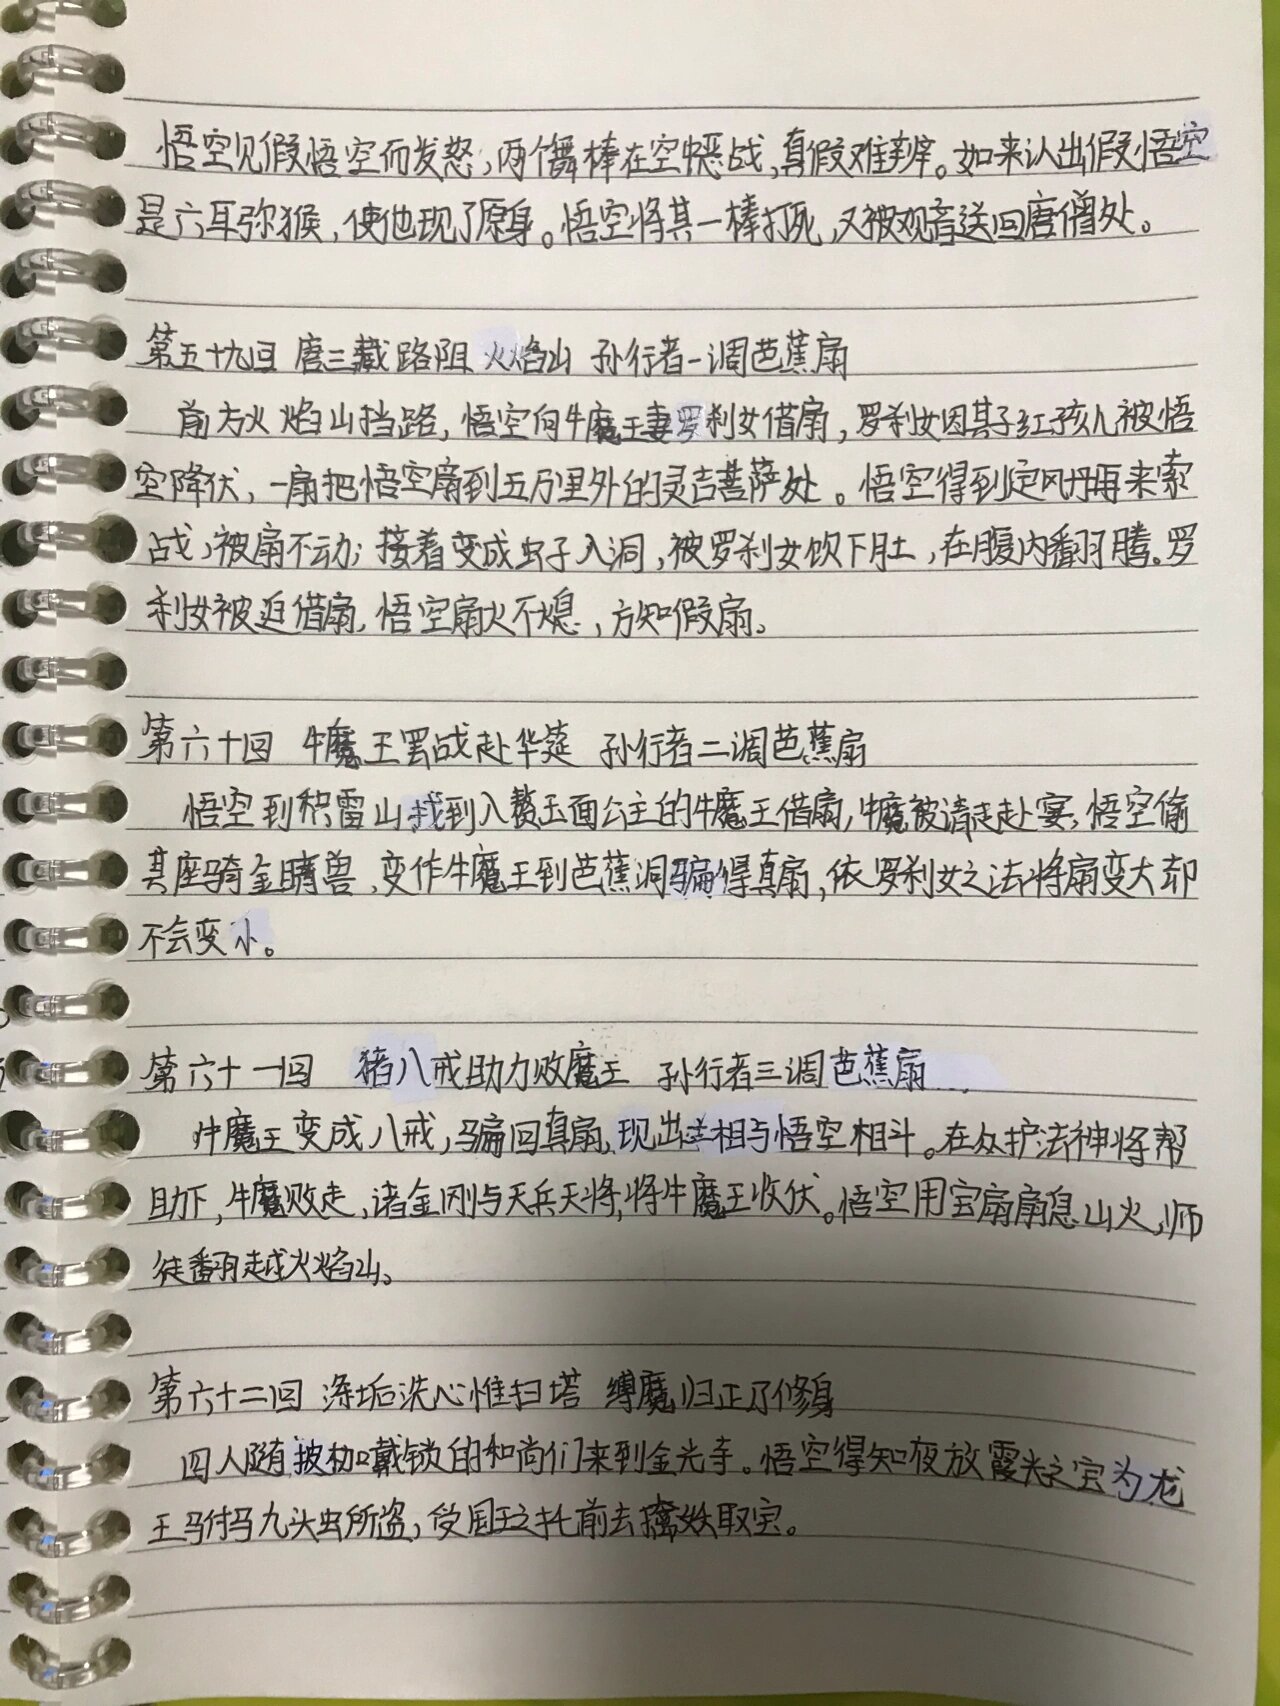 悟空见假悟空而发怒，两个舞棒在空中恶战，真假难辨。如来认出假悟空
是六耳弥猴，使他现了原身。悟空将其一棒打死，又被观音送回唐僧处。
第五十九回 唐三藏路阻火焰山 孙行者一调芭蕉扇
前方火焰山挡路，悟空向牛魔王妻罗刹女借扇，罗刹女因其子红孩儿被悟
空降伏，一扇把悟空扇到五万里外的灵吉菩萨处。悟空得到定风丹再来索
战，被扇不动；接着变成虫子入洞，被罗刹女饮下肚，在腹内翻腾。罗
刹女被迫借扇，悟空扇火不熄，方知假扇。
第六十回 牛魔王罢战赴华筵 孙行者二调芭蕉扇
悟空到积雷山找到入赘玉面公主的牛魔王借扇，牛魔被请走赴宴，悟空偷
其座骑金睛兽，变作牛魔王到芭蕉洞骗得真扇，依罗刹女之法将扇变大却
不会变小。
第六十一回 猪八戒助力败魔王 孙行者三调芭蕉扇
牛魔王变成八戒，骗回真扇，现出本相与悟空相斗。在众护法神将帮
助下，牛魔败走，诸金刚与天兵天将，将牛魔王收伏。悟空用宝扇扇息山火，师
徒翻越火焰山。
第六十二回 涤垢洗心惟扫塔 缚魔归正乃修身
四人随披枷戴锁的和尚们来到金光寺。悟空得知夜放霞光之宝为龙
王驸马九头虫所盗，受国王之托前去擒妖取宝。